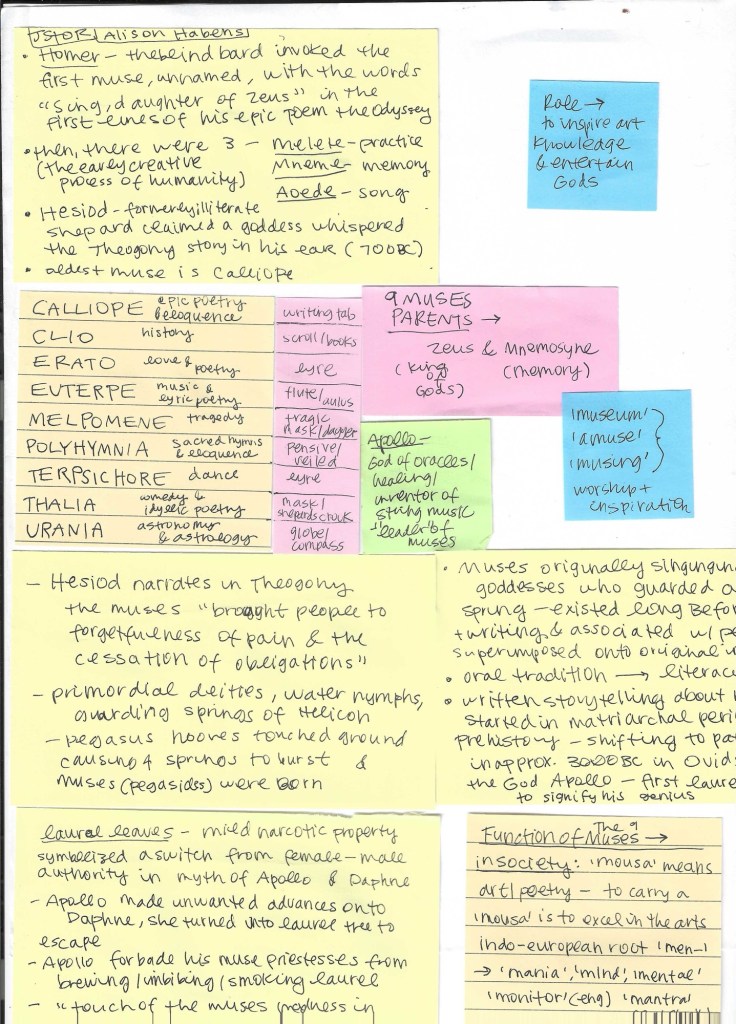 JSTOR | Alison Habens
• Homer – the blind bard invoked the
first muse, unnamed, with the words
"sing, daughter of Zeus" in the
first lines of his epic poem the Odyssey
• then, there were 3 – Melete – practice
(the early creative Mneme – memory
process of humanity)
Aoede – song
• Hesiod – formerly illiterate
shepard claimed a goddess whispered
the Theogony story in his ear (700BC)
• oldest muse is Calliope
Role →
to inspire art
knowledge
& entertain
Gods
CALLIOPE epic poetry & eloquence writing tab
CLIO history scroll/books
ERATO love & poetry lyre
EUTERPE music & lyric poetry flute/aulus
MELPOMENE tragedy tragic mask/dagger
POLYHYMNIA sacred hymns & eloquence pensive/veiled
TERPSICHORE dance lyre
THALIA comedy & idyllic poetry mask/shepherds crook
URANIA astronomy & astrology globe/compass
9 MUSES
PARENTS →
Zeus & Mnemosyne
(King of Gods) (memory)
Apollo –
God of oracles/
healing/
inventor of
string music
'leader' of
muses
'museum'
'amuse'
'musing'
worship +
inspiration
– Hesiod narrates in Theogony
the muses "brought people to
forgetfulness of pain & the
cessation of obligations"
– primordial deities, water nymphs,
guarding springs of Helicon
– pegasus hooves touched ground
causing 4 springs to burst &
muses (pegasides) were born
• Muses originally singing
goddesses who guarded a
spring – existed long befor
+ writing, & associated w/
superimposed onto original
• oral tradition → literac
• written storytelling about
started in matriarchal peri
prehistory – shifting to pa
in approx. 3000BC in Ovid
the God Apollo – first laure
to signify his genius
laurel leaves – mild narcotic property
symbolized a switch from female – male
authority in myth of Apollo & Daphne
– Apollo made unwanted advances onto
Daphne, she turned into laurel tree to
escape
– Apollo forbade his muse priestesses from
brewing/imbibing/smoking laurel
– "touch of the muses madness in
Function of The 9 Muses →
in society: 'mousa' means
art/poetry – to carry a
'mousa' is to excel in the arts
indo-european root 'men-'
→ 'mania', 'mind', 'mental'
'monitor' (-eng) 'mantra'